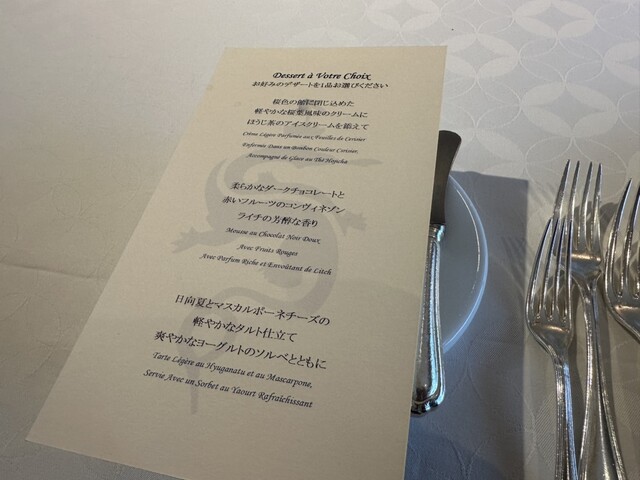 Dessert à Votre Choix
お好みのデザートを1品お選びください
桜色の飴に閉じ込めた
軽やかな桜葉風味のクリームに
ほうじ茶のアイスクリームを添えて
Crème Légère Parfumée aux Feuilles de Cerisier
Enfermée Dans un Bonbon Couleur Cerisier,
Accompagné de Glace au Thé Hojicha
柔らかなダークチョコレートと
赤いフルーツのコンヴィネゾン
ライチの芳醇な香り
Mousse au Chocolat Noir Doux
Avec Fruits Rouges
Avec Parfum Riche et Envoûtant de Litch
日向夏とマスカルポーネチーズの
軽やかなタルト仕立て
爽やかなヨーグルトのソルベとともに
Tarte Légère au Hyuganatu et au Mascarpone,
Servie Avec un Sorbet au Yaourt Rafraîchissant